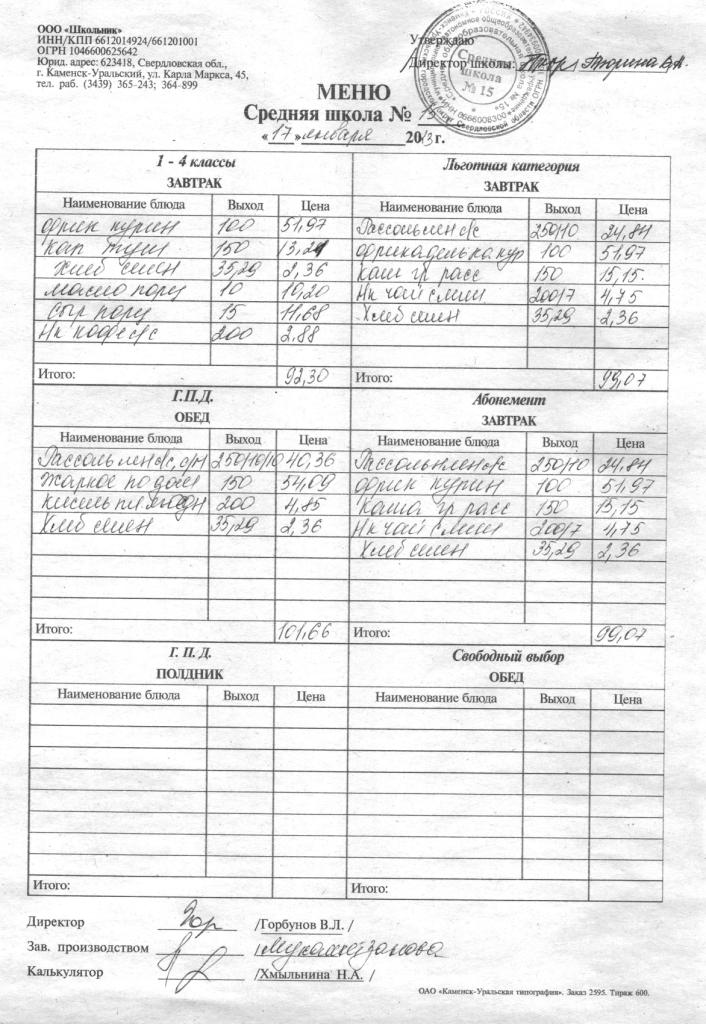 ООО «Школьник»
ИНН/КПП 6612014924/661201001
ОГРН 1046600625642
Юрид. адрес: 623418, Свердловская обл.,
г. Каменск-Уральский, ул. Карла Маркса, 45,
тел. раб. (3439) 365-243; 364-899
Утверждаю
Директор школы:
Средняя
школа
№ 15
МЕНЮ
Средняя школа № 15
«17» января 2013 г.
1 - 4 классы
ЗАВТРАК
Наименование блюда Выход Цена
фрик курин 100 51,97
150 13,21
Хлеб 35,29 2,36
масло порц 10 10,20
сыр порц 15 11,68
Нк кофе с/с 200 2,88
Итого: 92,30
Льготная категория
ЗАВТРАК
Наименование блюда Выход Цена
Рассольлен с/с 250/10 24,84
фрикаделька кур 100 51,97
Каш гр расс 150 15,15
Нк чай с лим 200/7 4,75
Хлеб 35,29 2,36
Итого: 99,07
Г.П.Д.
ОБЕД
Наименование блюда Выход Цена
Рассольлен с/с, с/м 250/10/10 40,36
Жаркое по дом 150 54,09
кисель пл ягодн 200 4,85
Хлеб 35,29 2,36
Итого: 101,66
Абонемент
ЗАВТРАК
Наименование блюда Выход Цена
Рассольлен с/с 250/10 24,84
фрик курин 100 51,97
Каша гр расс 150 15,15
Нк чай с лим 200/7 4,75
Хлеб 35,29 2,36
Итого: 99,07
Г. П. Д.
ПОЛДНИК
Наименование блюда Выход Цена
Итого:
Свободный выбор
ОБЕД
Наименование блюда Выход Цена
Итого:
Директор /Горбунов В.Л. /
Зав. производством /
Калькулятор /Хмыльнина Н.А. /
ОАО «Каменск-Уральская типография». Заказ 2595. Тираж 600.